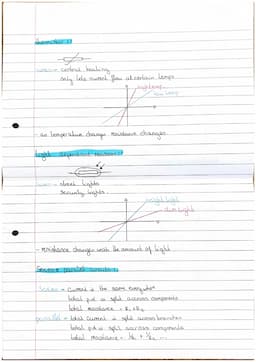 thermistor :
uses - central heating
only lets current flow at certain temps
high temp
low temp
- as temperature changes resistance changes
Light dependent resistor :
uses - street lights
security lights
bright light
dim light
- resistance changes with the amount of light
Series + parallel circuits :
Series - current is the same everywhere
total p.d is split across components
total resistance = R₁ + R₂
parallel - total current is split across branches
total p.d is split across components
total resistance =